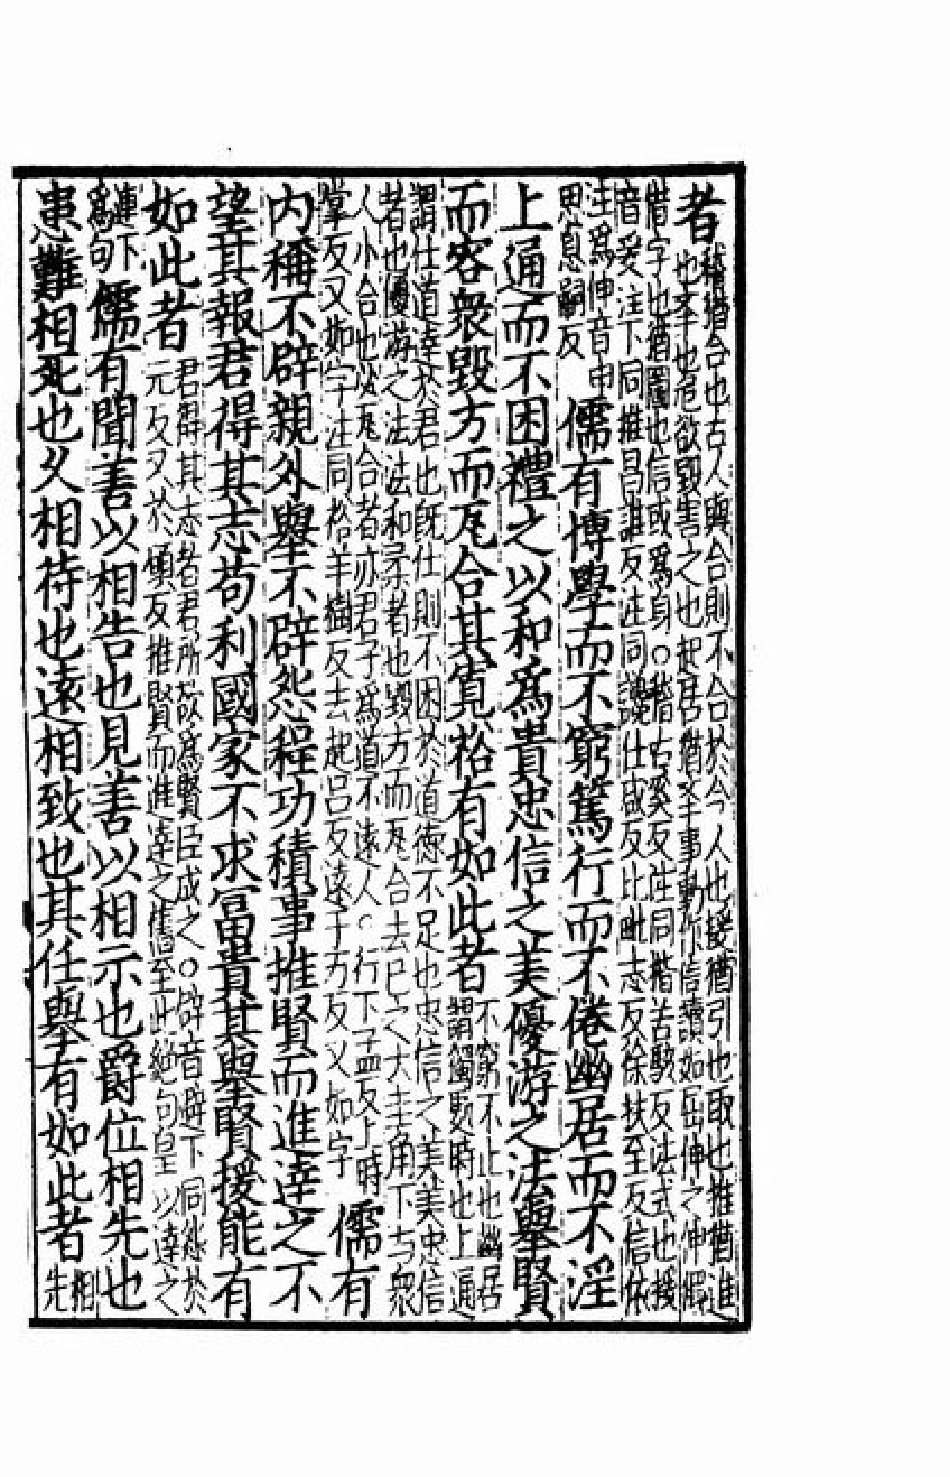 者稽猶合也古人與合則不合於今人也援猶引也取也推猶進
也舉也危欲毀害之也起居猶舉事動作信讀如屈伸之伸假
借字也猶圖也信或爲身○稽古奚反注同楷苦駭反法式也援
音爰注下同推昌誰反注同讒仕咸反比毗志反徐扶至反信依
注爲伸音申
思息嗣反儒有博學而不窮篤行而不倦幽居而不淫
上通而不困禮之以和爲貴忠信之美優游之法舉賢
而容衆毀方而瓦合其寬裕有如此者不窮不止也幽居
謂獨處時也上通
謂仕道達於君也旣仕則不困於道德不足也忠信之美美忠信
者也優游之法法和柔者也毀方而瓦合去己之大圭角下與衆
人小合也必瓦合者亦君子爲道不遠人○行下孟反上時
掌反又如字注同裕羊樹反去起呂反遠于万反又如字儒有
內稱不辟親外舉不辟怨程功積事推賢而進達之不
望其報君得其志苟利國家不求富貴其舉賢援能有
如此者君得其志者君所欲爲賢臣成之○辟音避下同怨於
元反又於願反推賢而進達之舊至此絕句皇以達之
連下
爲句儒有聞善以相告也見善以相示也爵位相先也
患難相死也久相待也遠相致也其任舉有如此者相
先